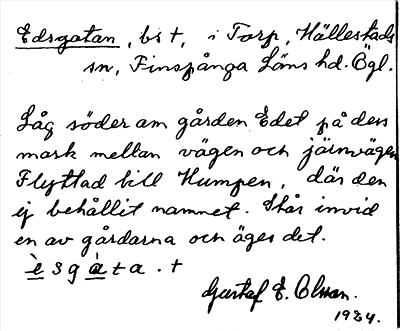 Edsgatan, bst, i Torp, Hällestads
sn, Finspånga Läns hd. Ögl.
Låg söder om gården Edet på dess
mark mellan vägen och järnvägen
Flyttad till Humpen, där den
ej behållit namnet. Står invid
en av gårdarna och äges det.
è s g à t a . t
Gustaf E. Olsson.
1924.